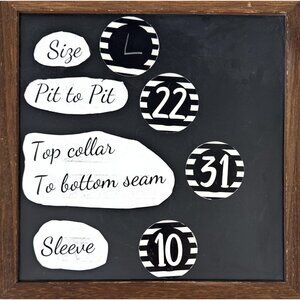 Size L
Pit to Pit 22
Top collar
To bottom seam 31
Sleeve 10